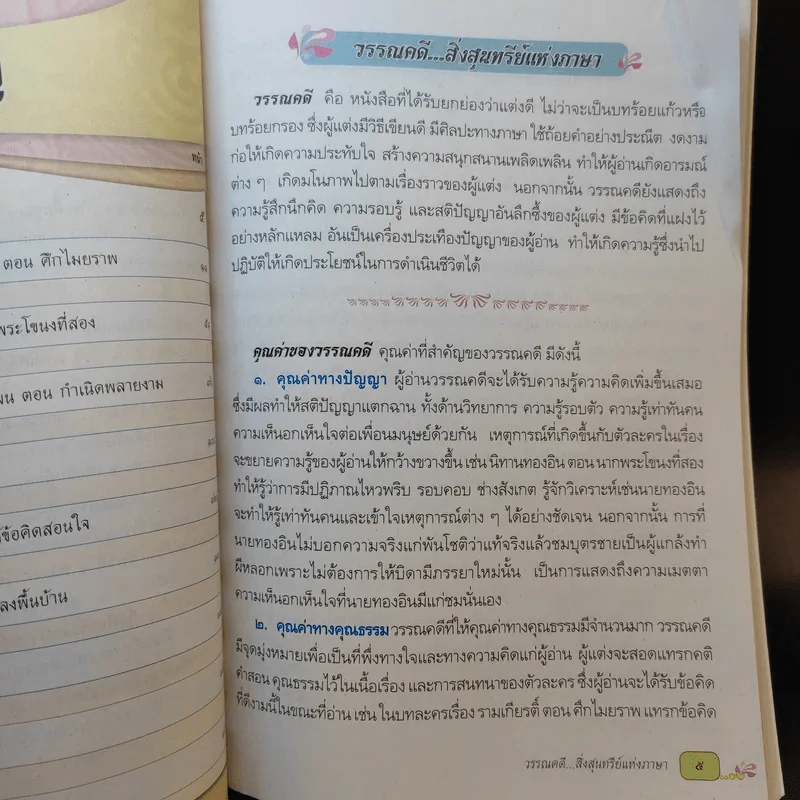 หน้า
๕
ตอน ศึกไมยราพ
พระโขนงที่สอง
ตอน กำเนิดพลายงาม
ข้อคิดสอนใจ
ลงพื้นบ้าน
วรรณคดี...สิ่งสุนทรีย์แห่งภาษา
วรรณคดี คือ หนังสือที่ได้รับยกย่องว่าแต่งดี ไม่ว่าจะเป็นบทร้อยแก้วหรือ
บทร้อยกรอง ซึ่งผู้แต่งมีวิธีเขียนดี มีศิลปะทางภาษา ใช้ถ้อยคำอย่างประณีต งดงาม
ก่อให้เกิดความประทับใจ สร้างความสนุกสนานเพลิดเพลิน ทำให้ผู้อ่านเกิดอารมณ์
ต่าง ๆ เกิดมโนภาพไปตามเรื่องราวของผู้แต่ง นอกจากนั้น วรรณคดียังแสดงถึง
ความรู้สึกนึกคิด ความรอบรู้ และสติปัญญาอันลึกซึ้งของผู้แต่ง มีข้อคิดที่แฝงไว้
อย่างหลักแหลม อันเป็นเครื่องประเทืองปัญญาของผู้อ่าน ทำให้เกิดความรู้ซึ่งนำไป
ปฏิบัติให้เกิดประโยชน์ในการดำเนินชีวิตได้
คุณค่าของวรรณคดี คุณค่าที่สำคัญของวรรณคดี มีดังนี้
๑. คุณค่าทางปัญญา ผู้อ่านวรรณคดีจะได้รับความรู้ความคิดเพิ่มขึ้นเสมอ
ซึ่งมีผลทำให้สติปัญญาแตกฉาน ทั้งด้านวิทยาการ ความรู้รอบตัว ความรู้เท่าทันคน
ความเห็นอกเห็นใจต่อเพื่อนมนุษย์ด้วยกัน เหตุการณ์ที่เกิดขึ้นกับตัวละครในเรื่อง
จะขยายความรู้ของผู้อ่านให้กว้างขวางขึ้น เช่น นิทานทองอิน ตอน นากพระโขนงที่สอง
ทำให้รู้ว่าการมีปฏิภาณไหวพริบ รอบคอบ ช่างสังเกต รู้จักวิเคราะห์เช่นนายทองอิน
จะทำให้รู้เท่าทันคนและเข้าใจเหตุการณ์ต่าง ๆ ได้อย่างชัดเจน นอกจากนั้น การที่
นายทองอินไม่บอกความจริงแก่พันโชติว่าแท้จริงแล้วชมบุตรชายเป็นผู้แกล้งทำ
ผีหลอกเพราะไม่ต้องการให้บิดามีภรรยาใหม่นั้น เป็นการแสดงถึงความเมตตา
ความเห็นอกเห็นใจที่นายทองอินมีแก่ชมนั่นเอง
๒. คุณค่าทางคุณธรรม วรรณคดีที่ให้คุณค่าทางคุณธรรมมีจำนวนมาก วรรณคดี
มีจุดมุ่งหมายเพื่อเป็นที่พึ่งทางใจและทางความคิดแก่ผู้อ่าน ผู้แต่งจะสอดแทรกคติ
คำสอน คุณธรรมไว้ในเนื้อเรื่อง และการสนทนาของตัวละคร ซึ่งผู้อ่านจะได้รับข้อคิด
ที่ดีงามนี้ในขณะที่อ่าน เช่น ในบทละครเรื่อง รามเกียรติ์ ตอน ศึกไมยราพ แทรกข้อคิด
วรรณคดี...สิ่งสุนทรีย์แห่งภาษา ๕